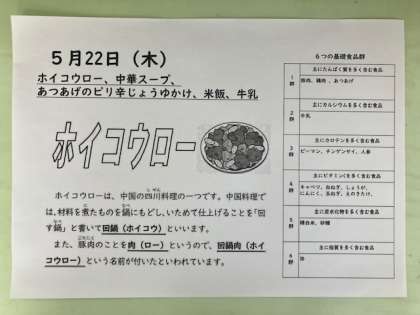 5月22日(木)
ホイコウロー、中華スープ、
あつあげのピリ辛じょうゆかけ、米飯、牛乳
ホイコウロー
ホイコウローは、中国の四川料理の一つです。中国料理で
は、材料を煮たものを鍋にもどし、いためて仕上げることを「回
す鍋」と書いて回鍋(ホイコウ)といいます。
また、豚肉のことを肉(ロー)というので、回鍋肉(ホイ
コウロー)という名前が付いたといわれています。
6つの基礎食品群
主にたんぱく質を多く含む食品
1群
豚肉、鶏肉、あつあげ
主にカルシウムを多く含む食品
2群
牛乳
主にカロテンを多く含む食品
3群
ピーマン、チンゲンサイ、人参
主にビタミンCを多く含む食品
4群
キャベツ、白ねぎ、しょうが、
にんにく、玉ねぎ、えのきたけ、
主に炭水化物を多く含む食品
5群
精白米、砂糖
主に脂質を多く含む食品
6群
油